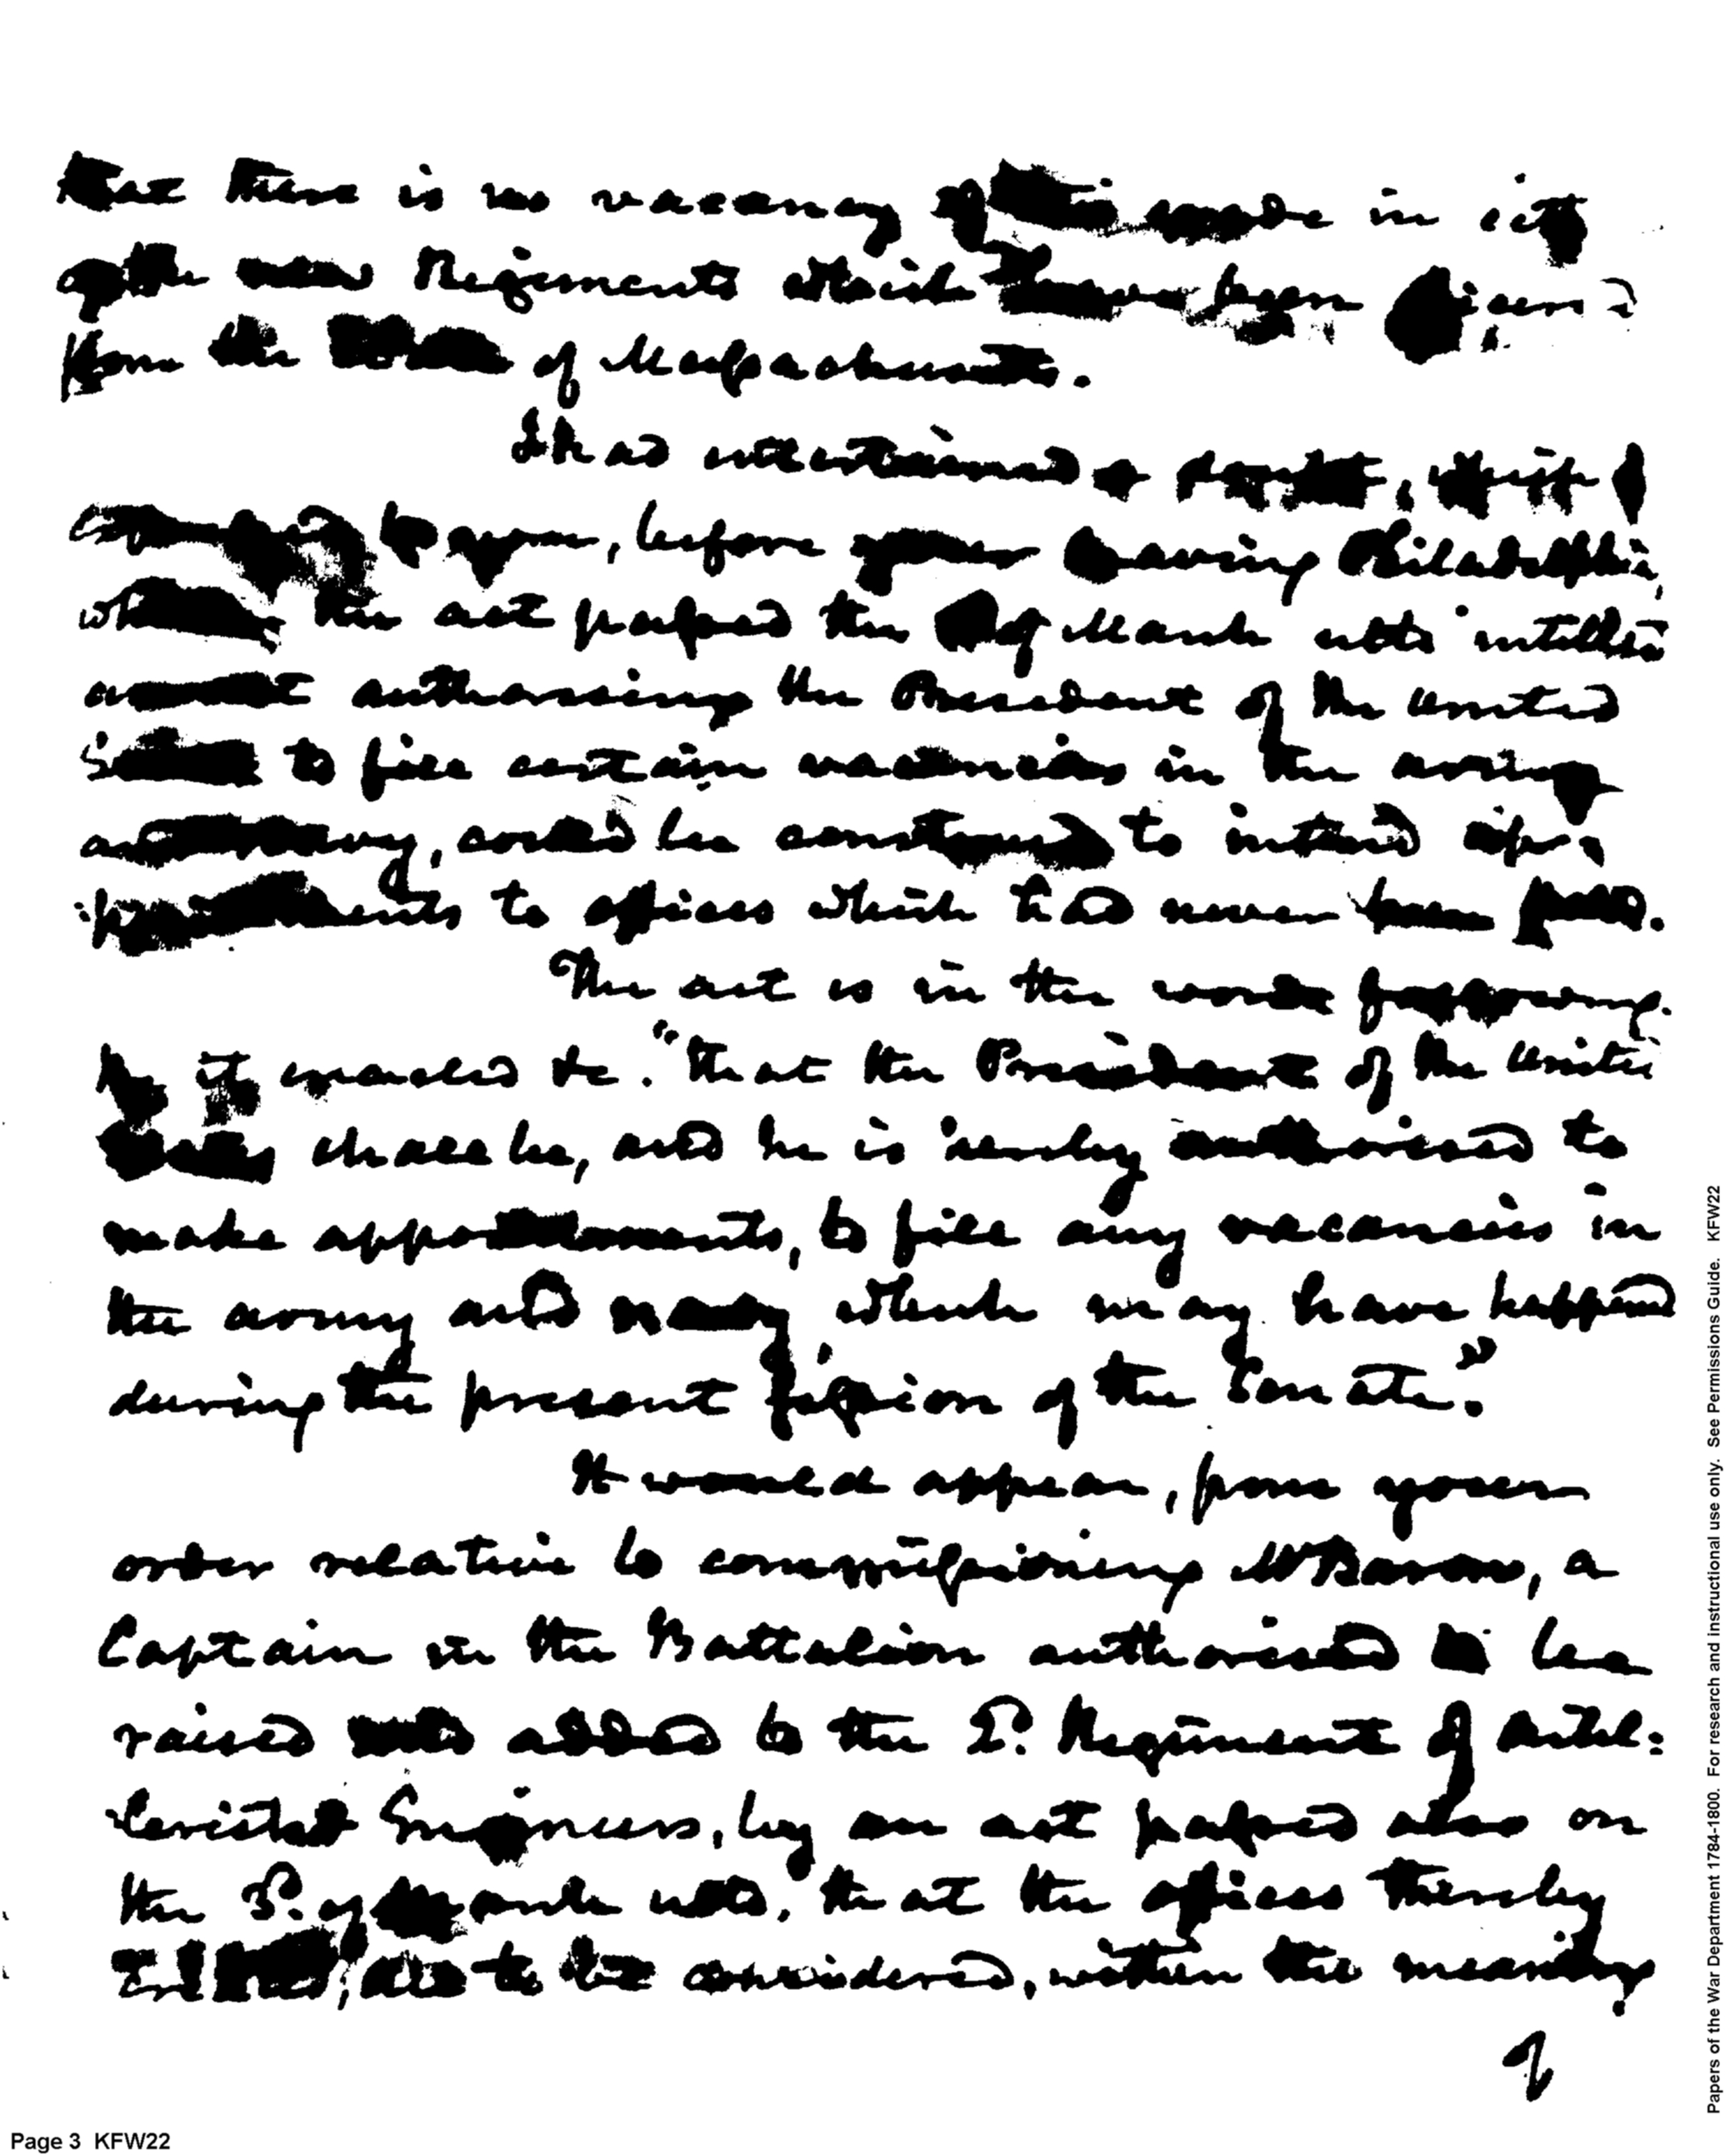 there is no vacancy of this grade in
of the new Regiments which have been
from the State of Massachusetts.
I had entertained a doubt,
to you, before your leaving Philadelphia,
whether the act passed the of March
authorising the President of the United
States to fill certain vacancies in the army
and navy, could be construed to intend
to offices which had never been full.
The act is in the words following.
Be it enacted &c. "That the President of the United
States shall be, and he is hereby authorised to
make appointments, to fill any vacancies in
the army and navy which may have happened
during the present session of the Senate."
It would appear, from your
order relative to commissioning Mr a
Captain in the Battalion authorised to be
raised and added to the 2d. Regiment of Artil:
lerists & Engineers, by an act passed also on
the 3d. of March that the offices thereby
are to be considered, within the meaning
of
Page 3 KFW22
Papers of the War Department 1784-1800. For research and instructional use only. See Permissions Guide. KFW22